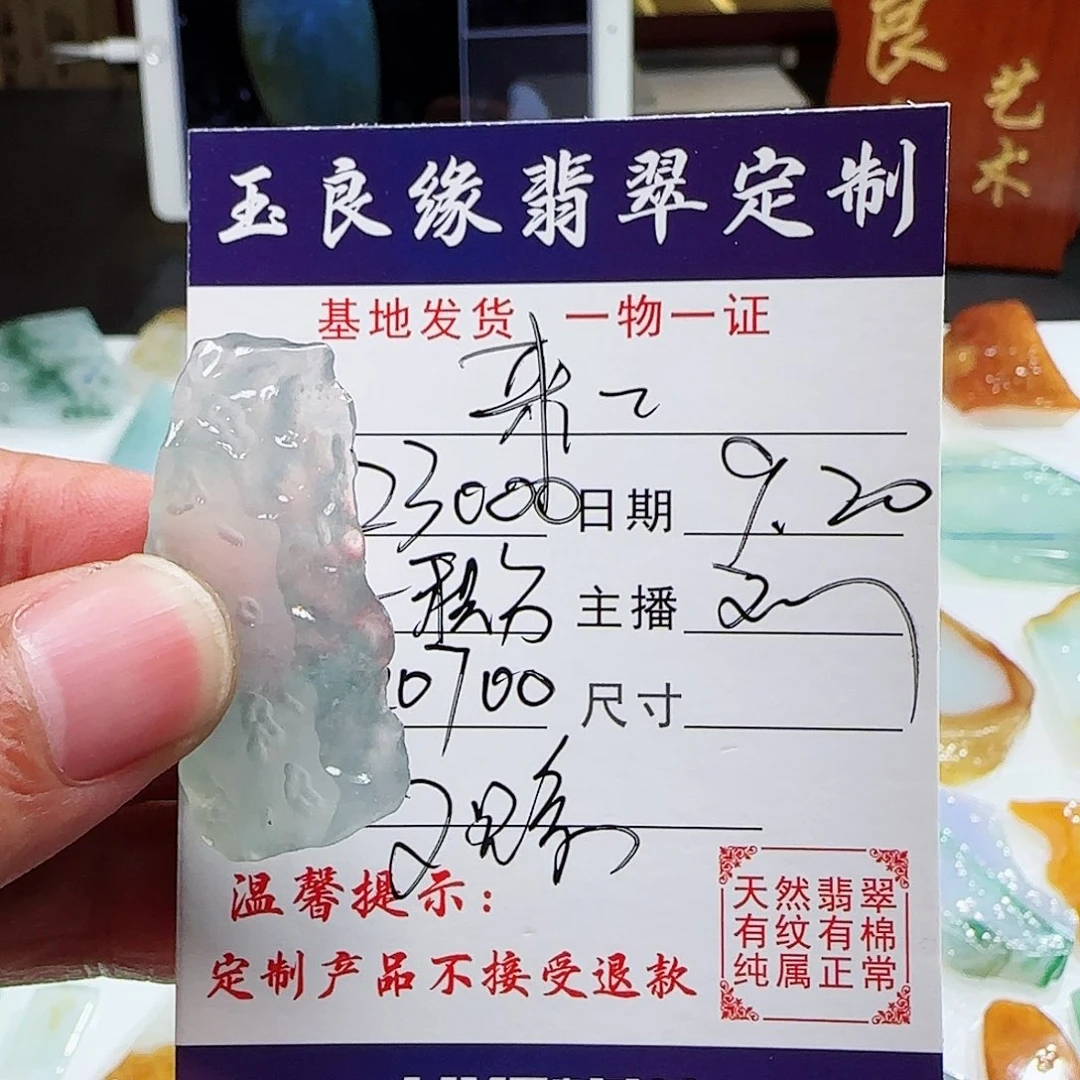 良
艺术
玉良缘翡翠定制
基地发货 一物一证
23000 日期 9.20
主播
0700 尺寸
温馨提示：
定制产品不接受退款
天然翡翠
有纹有棉
纯属正常